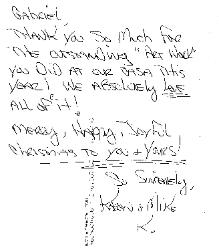 Gabriel,
Thank you so much for
the outstanding "Art Work"
you did at our casa this
year! We absolutely love
all of it!
Merry, Happy, Joyful
Christmas to you + yours!
So Sincerely,
Karen + Mike
K.